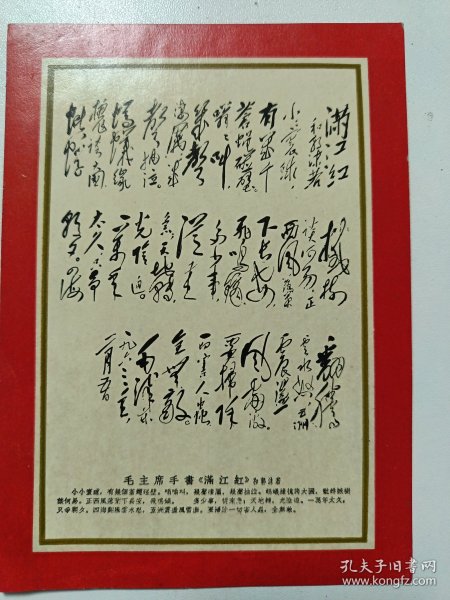 满江红
和郭沫若
小小寰球
有几个
苍蝇碰壁
嗡嗡叫
几声
凄厉几
声抽泣
蚂蚁缘
槐夸大国
蚍蜉
撼树
谈何易正
西风落葉
下长安
飛鳴鏑
多少事
从来
急天地转
光陰迫
一万年
太久只争
朝夕四海
翻騰
雲水怒五洲
震盪
风雷激
要掃除
一切害人虫
全無敵
毛泽东
一九六三年
二月五日
毛主席手書《滿江紅》和郭沫若
小小寰球，有幾個蒼蠅碰壁。嗡嗡叫，幾聲凄厲，幾聲抽泣。螞蟻緣槐夸大國，蚍蜉撼樹
談何易。正西風落葉下長安，飛鳴鏑。 多少事，從來急；天地轉，光陰迫。一萬年太久，
只爭朝夕。四海翻騰雲水怒，五洲震盪風雷激。要掃除一切害人蟲，全無敵。
孔夫子旧书网
kongfz.com